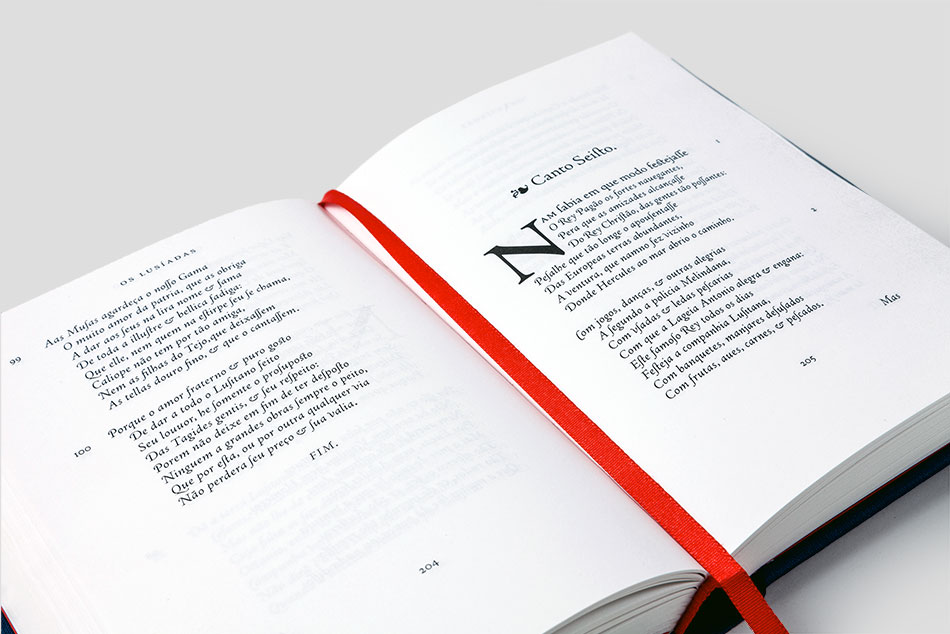 OS LUSÍADAS
99
Aas Muſas agardeça o noſſo Gama
O muito amor da patria, que as obriga
A dar aos ſeus na lira nome & fama
De toda a illuſtre & bellica fadiga:
Que elle, nem quem na eſtirpe ſeu ſe chama,
Caliope não tem por tão amiga,
Nem as filhas do Tejo, que deixaſſem
As tellas douro fino, & que o cantaſſem.
100
Porque o amor fraterno & puro goſto
De dar a todo o Luſitano feito
Seu louuor, he ſomente o proſupoſto
Das Tagides gentis, & ſeu reſpeito:
Porem não deixe em fim de ter deſpoſto
Ninguem a grandes obras ſempre o peito
Que por eſta, ou por outra qualquer via
Não perdera ſeu preço & ſua valia.
FIM.
204
Canto Seiſto.
1
NAM ſabia em que modo feſtejaſſe
O Rey Pagão os fortes nauegantes,
Pera que as amizades alcançaſſe
Do Rey Chriſtão, das gentes tão poſſantes:
Peſalhe que tão longe o apouſentaſſe
Das Europeas terras abundantes,
A ventura, que namno fez vizinho
Donde Hercules ao mar abrio o caminho.
2
Com jogos, danças, & outras alegrias
A ſegundo a policia Melindana,
Com vſadas & ledas peſcarias
Com que a Lageia Antonio alegra & engana:
Eſte famoſo Rey todos os dias
Feſteja a companhia Luſitana,
Com banquetes, manjares deſuſados
Com frutas, aues, carnes, & peſcados.
Mas
205